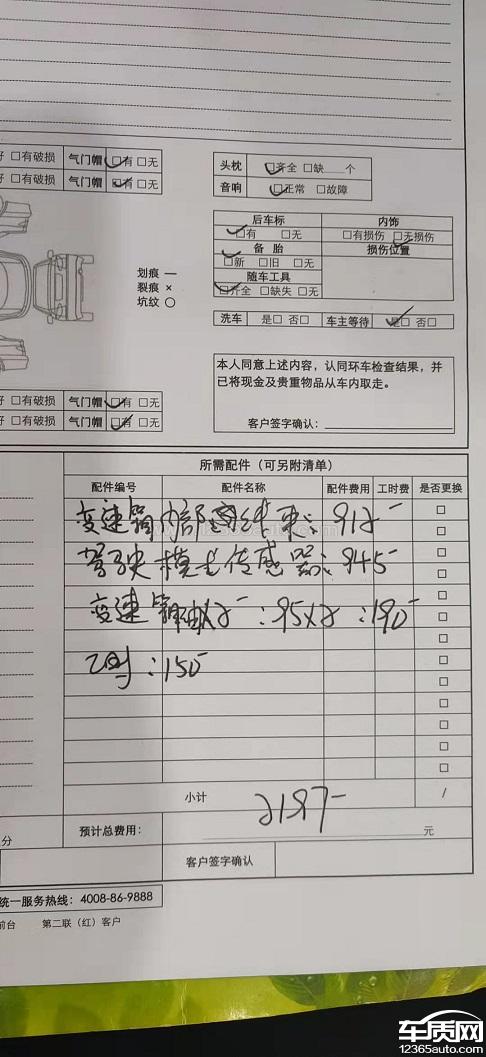 好 □有破损 气门帽 □有 □无
好 □有破损 气门帽 □有 □无
头枕 □齐全 □缺 个
音响 □正常 □故障
后车标 内饰
□有 □无 □有损伤 □无损伤
备胎 损伤位置
□新 □旧 □无
随车工具
□齐全 □缺失 □无
划痕 —
裂痕 ×
坑纹 ○
洗车 是□ 否□ 车主等待 是□ 否□
本人同意上述内容，认同环车检查结果，并
已将现金及贵重物品从车内取走。
客户签字确认：
好 □有破损 气门帽 □有 □无
好 □有破损 气门帽 □有 □无
所需配件（可另附清单）
配件编号 配件名称 配件费用 工时费 是否更换
变速箱内部线束：912
驾驶模式传感器：945
变速箱油×2：95×2：190
工时：150
小计 /
2197
预计总费用： 元
分
客户签字确认
统一服务热线：4008-86-9888
前台 第二联（红）客户
车质网
12365auto.com